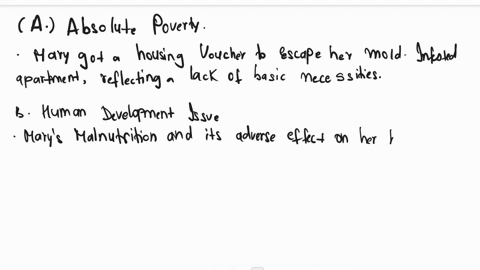 (A.) Absolute Poverty.
· Mary got a housing Voucher to Escape her mold. Infested
apartment, reflecting a lack of basic necessities.
B. Human Development Issue
· Mary's Malnutrition and its adverse effect on her